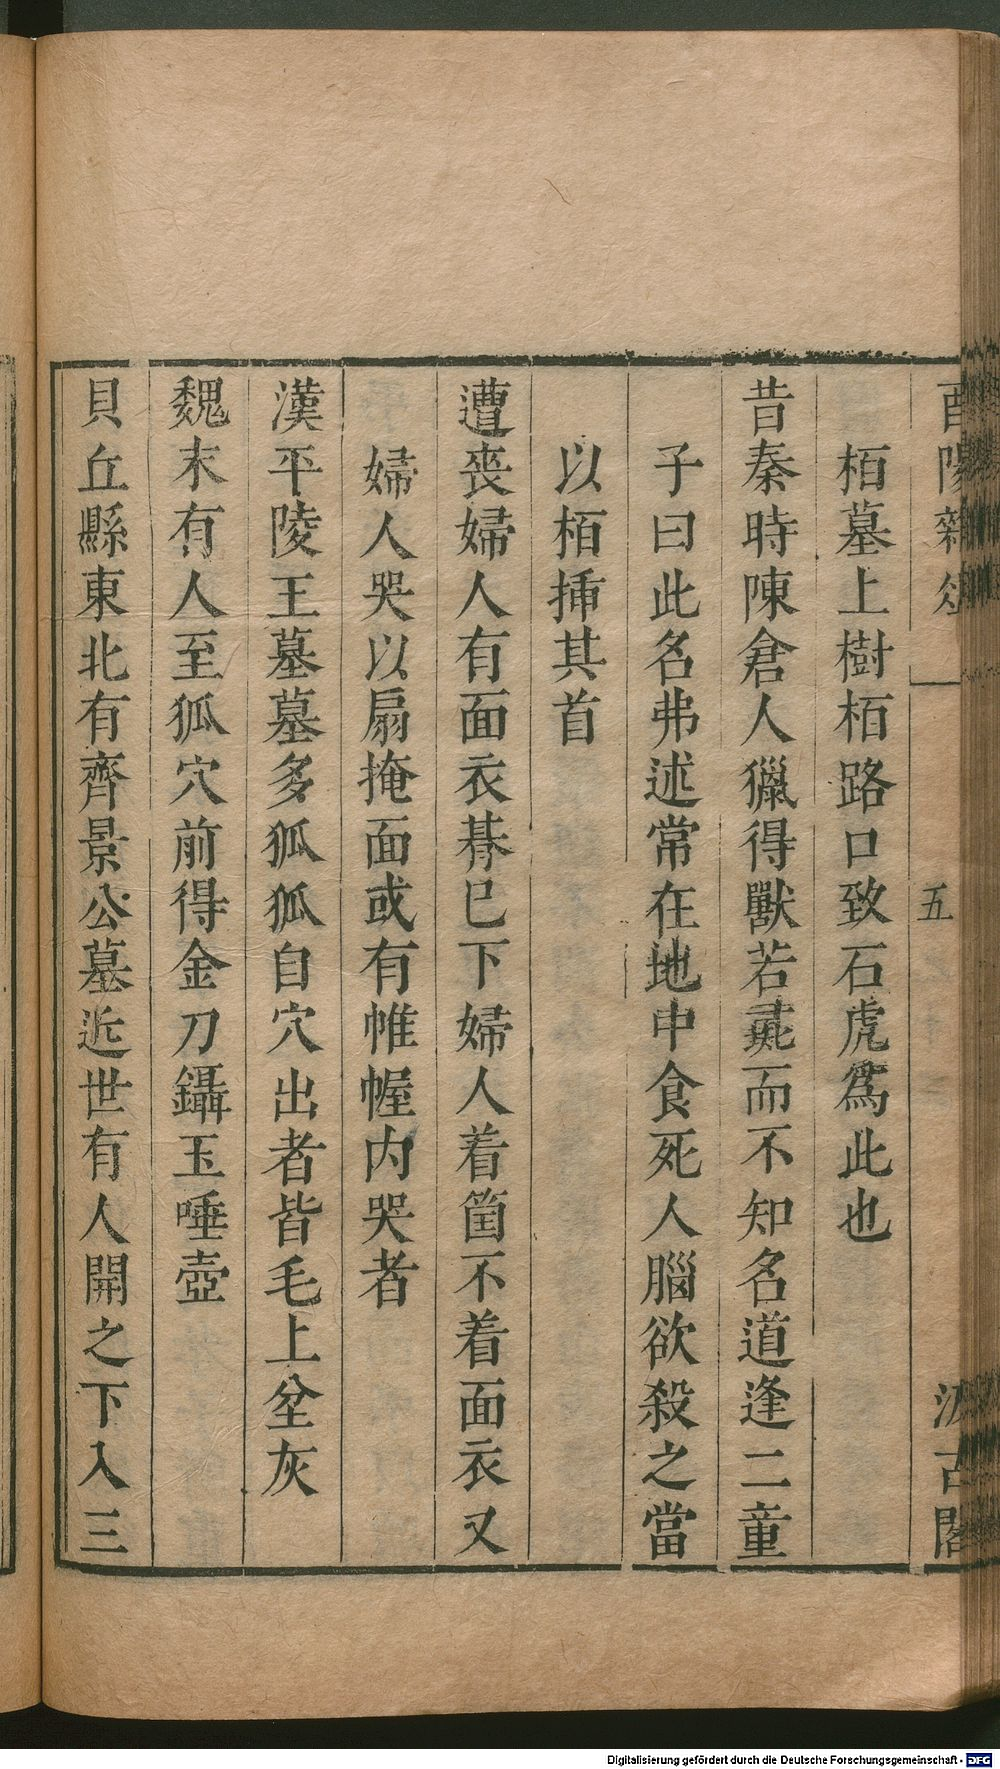 酉陽雜俎
五
汲古閣
栢墓上樹栢路口致石虎爲此也
昔秦時陳倉人獵得獸若彘而不知名道逢二童
子曰此名弗述常在地中食死人腦欲殺之當
以栢揷其首
遭喪婦人有面衣朞已下婦人着箇不着面衣又
婦人哭以扇掩面或有帷幄内哭者
漢平陵王墓墓多狐狐自穴出者皆毛上坌灰
魏末有人至狐穴前得金刀鑷玉唾壺
貝丘縣東北有齊景公墓近世有人開之下入三
Digitalisierung gefördert durch die Deutsche Forschungsgemeinschaft - DFG